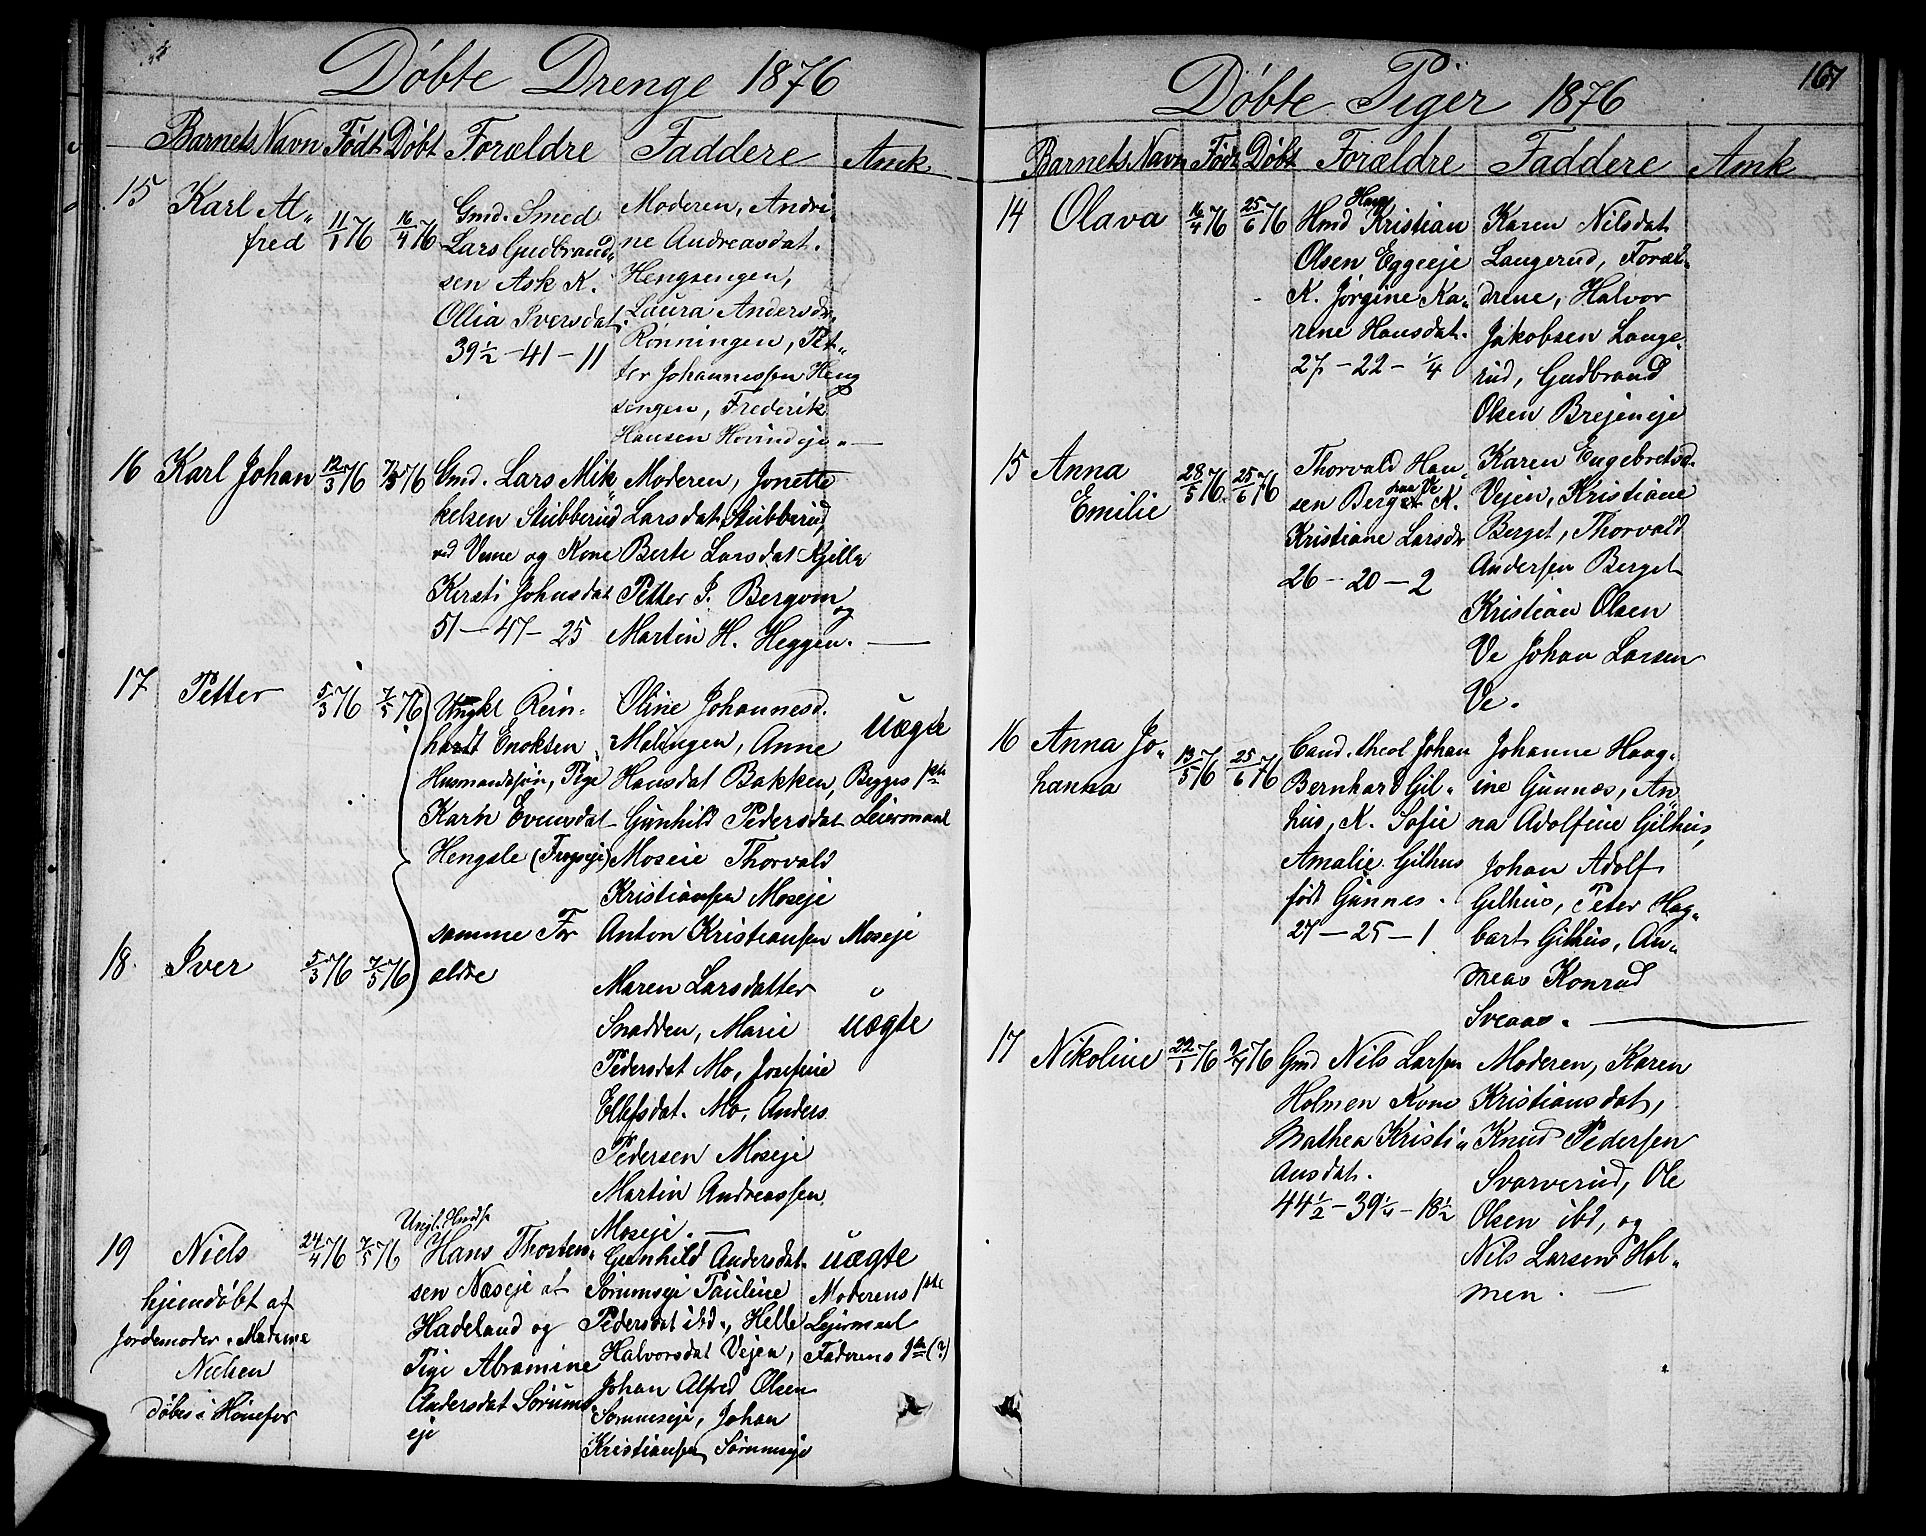 Döbte Drenge 1876
Barnets Navn Födt Döbt Forældre Faddere Amk
15 Karl Al„
fred
11/1 76 16/4 76
Gmd. Smed
Lars Gudbrand„
sen Ask K.
Ollia Iversdat.
39 1/2 - 41 - 11
Moderen, Andri„
ne Andreasdat.
Hengsengen,
Laura Andersdr.
Rønningen, Pet„
ter Johannessen Heng
sengen, Frederik
Hansen Hovindeje. —
16 Karl Johan 12/3 76 7/5 76
Gmd. Lars Mik„
kelsen Stubberud
ved Veme og Kone
Kersti Johnsdat
51 - 47 - 25
Moderen, Jonette
Larsdat. Stubberud,
Berte Larsdat Kjilla
Petter J. Bergvm og
Martin H. Heggen. —
17 Petter 5/3 76 7/5 76
Ungkl Rein„
hardt Enoksen
Husmandssøn, Pige
Karn Evensdat
Hengsle (Frogseje)
Oline Johannesd.
Malingen, Anne
Hansdat Bakken,
Gunhild Pedersdat
Moseie Thorvald
Kristiansen Moseje
Anton Kristiansen Moseje
uægte
Begges 1ste
Leiermaal
18. Iver 5/3 76 7/5 76
samme For
ældre
Maren Larsdatter
Snadden, Marie
Pedersdat Mo, Josefine
Ellefsdat. Mo, Anders
Pedersen Moseje
Martin Andreassen
Moseje. —
uægte
19 Niels 24/4 76 7/5 76
hjemdøbt af
Jordemoder, Madame
Nielsen
döbes i Hönefos
Ungk. Hmds.
Hans Thosten„
sen Næseje at
Hadeland og
Pige Abramine
Andersdat Sörums
eje
Gunhild Andersdat.
Sörumseje Pauline
Pedersdat ibd., Helle
Halvorsdat Vejen,
Johan Alfred Olsen
Sörumseje, Johan
Kristiansen Sörumseje
uægte
Moderens 1ste
Lejermaal
Faderens 1ste (?)
Döbte Piger 1876
167
Barnets Navn Födt Döbt Forældre Faddere Amk
14 Olava 16/4 76 25/6 76
Hans
Hmd Kristian
Olsen Eggeeje
K. Jörgine Ka„
rene Hansdat.
27 - 22 - 1/4
Karen Nilsdat
Langerud, Foræl„
drene, Halvor
Jakobsen Lange„
rud, Gudbrand
Olsen Brejeneje
15 Anna
Emilie
28/5 76. 25/6 76
Thorvald Han„
sen Berget paa Ve K.
Kristiane Larsdr
26 - 20 - 2
Karen Engebretsd.
Vejen, Kristiane
Berget, Thorvald
Andersen Berget
Kristian Olsen
Ve Johan Larsen
Ve.
16 Anna Jo„
hanna
13/5 76 25/6 76
Cand. theol Johan
Bernhard Gil„
hus, K. Sofie
Amalie Gilhus
födt Gunnes.
27 - 25 - 1
Johanne Haag„
ine Gunnæs, An„
na Adolfine Gilhus,
Johan Adolf
Gilhus, Peter Hag„
bart Gilhus, An„
dreas Konrad
Sveaas. —
17 Nikoline 22/1 76 2/7 76
Gmd Nils Larsen
Holmen Kone
Mathea Kristi„
ansdat.
44 1/2 - 39 1/4 - 18 1/2
Moderen, Karen
Kristiansdat,
Knud Pedersen
Svarverud, Ole
Olsen ibd, og
Nils Larsen Hol„
men. —